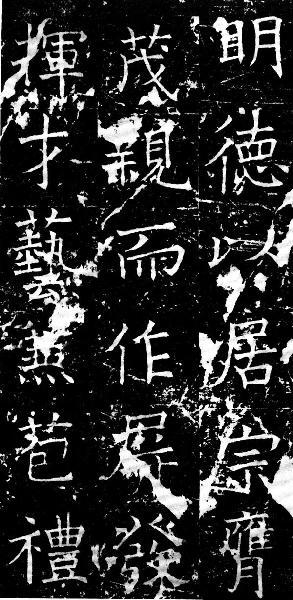 明徳以居宗膺
茂親而作屏發
揮才藝兼苞禮